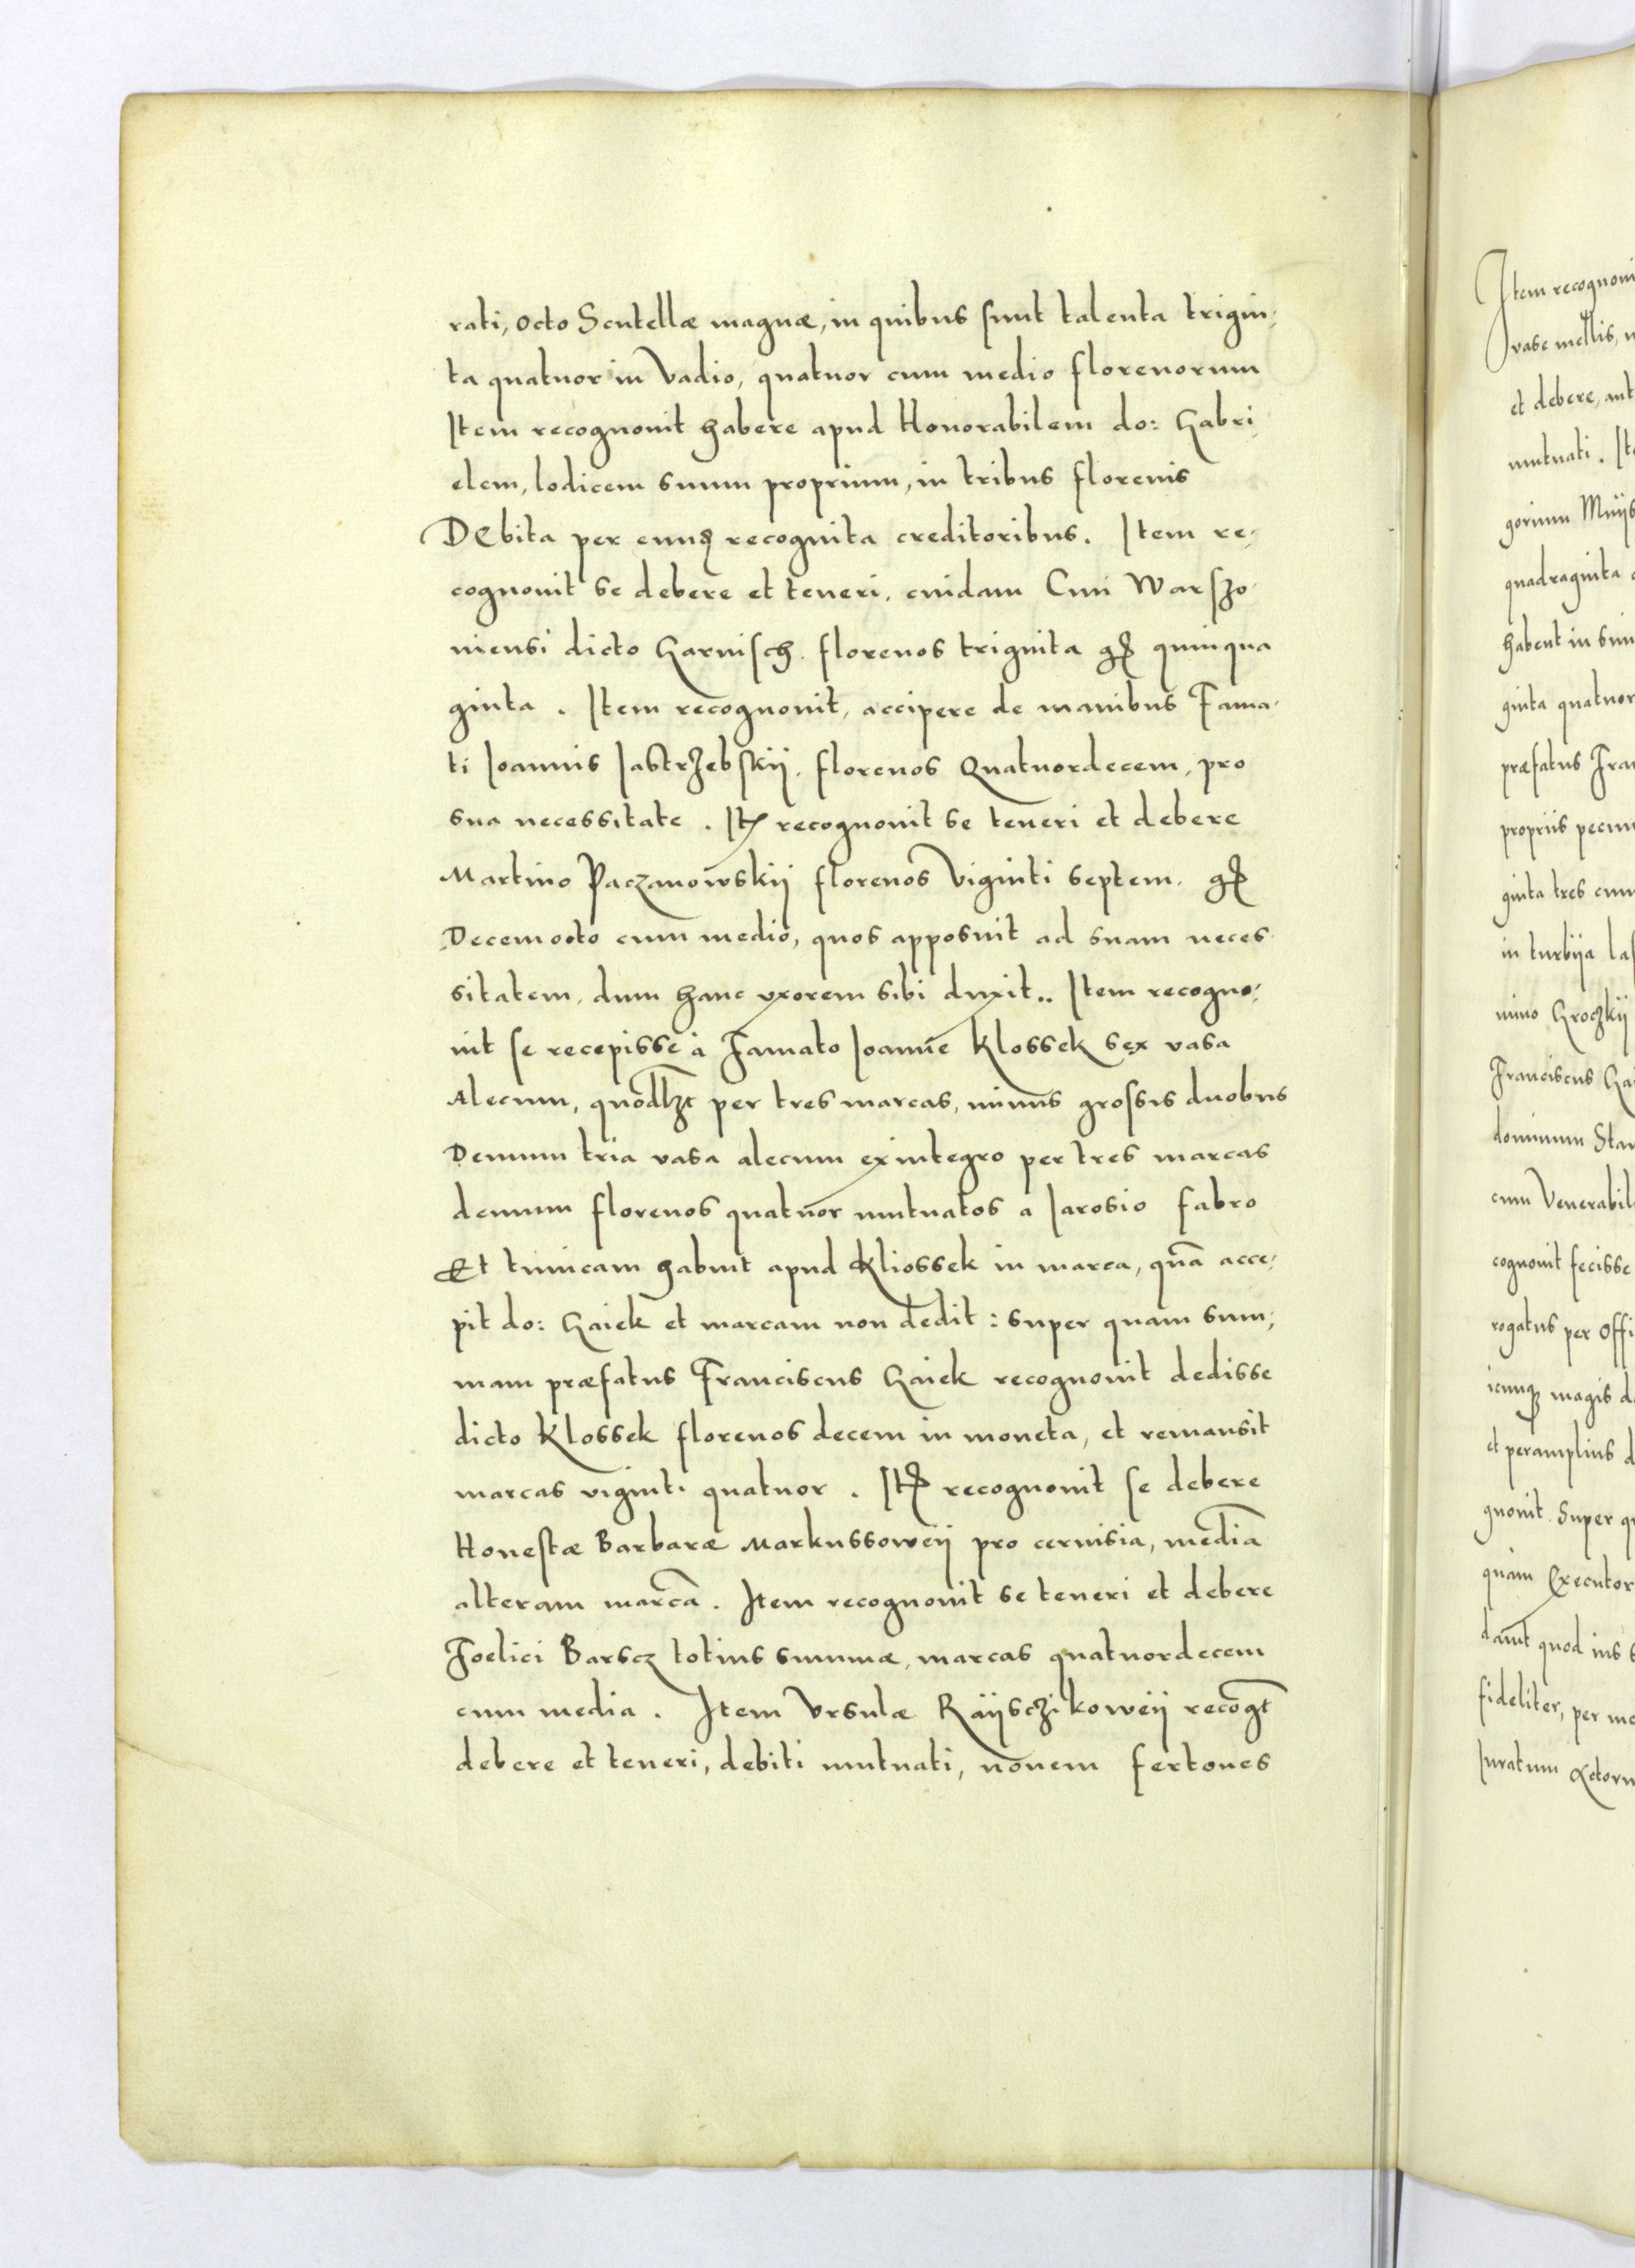 rati, octo Scutellæ magnæ, in quibus sunt talenta trigin,
ta quatuor in Vadio, quatuor cum medio florenorum
Item recognouit habere apud Honorabilem do: Gabri,
elem, lodicem suum proprium, in tribus florenis
DEbita per eunq̃ recognita creditoribus. Item re,
cognouit se debere et teneri, cuidam Ciui Warszo,
uiensi dicto Garnisch. florenos triginta gr̃ quinqua
ginta. Item recognouit, accipere de manibus Fama,
ti Joannis Jastrzebskij. florenos Quatuordecem, pro
sua necessitate. Itẽ recognouit se teneri et debere
Martino Paczanowskij florenos Viginti septem. gr̃
Decemocto cum medio, quos apposuit ad suam neces
sitatem, dum hanc vxorem sibi duxit.. Item recogno,
uit se recepisse à Famato Joanne Klossek sex vasa
Alecum, quodlz̃t per tres marcas, minus grossis duobus
Demum tria vasa alecum ex integro per tres marcas
demum florenos quatuor mutuatos a Jarosio fabro
Et tunicam habuit apud Kliossek in marca, quã acce,
pit do: Gaiek et marcam non dedit: super quam sum,
mam præfatus Franciscus Gaiek recognouit dedisse
dicto Klossek florenos decem in moneta, et remansit
marcas viginti quatuor. Itẽ recognouit se debere
Honestæ Barbaræ Markussoweij pro ceruisia, mediã
alteram marcã. Item recognouit se teneri et debere
Foelici Barscz totius summæ, marcas quatuordecem
cum media. Item Vrsulæ Raijsczikoweij recogt̃
debere et teneri, debiti mutuati, nouem fertones
Item recognoui
vase mellis,
et debere, ant
mutuati. It
gorium Mnijs
quadraginta
habent in sum
ginta quatuor
præfatus Fran
propriis pecun
ginta tres cum
in turbija las
mino Groczkij
Franciscus Gai
dominum Stan
cum Venerabil
cognouit fecisse
rogatus per Offi
icunq̃ magis d
et peramplius d
gnouit. Super q
quam Executor
dant̃ quod ius s
fideliter, per mo
Juratum Actoru